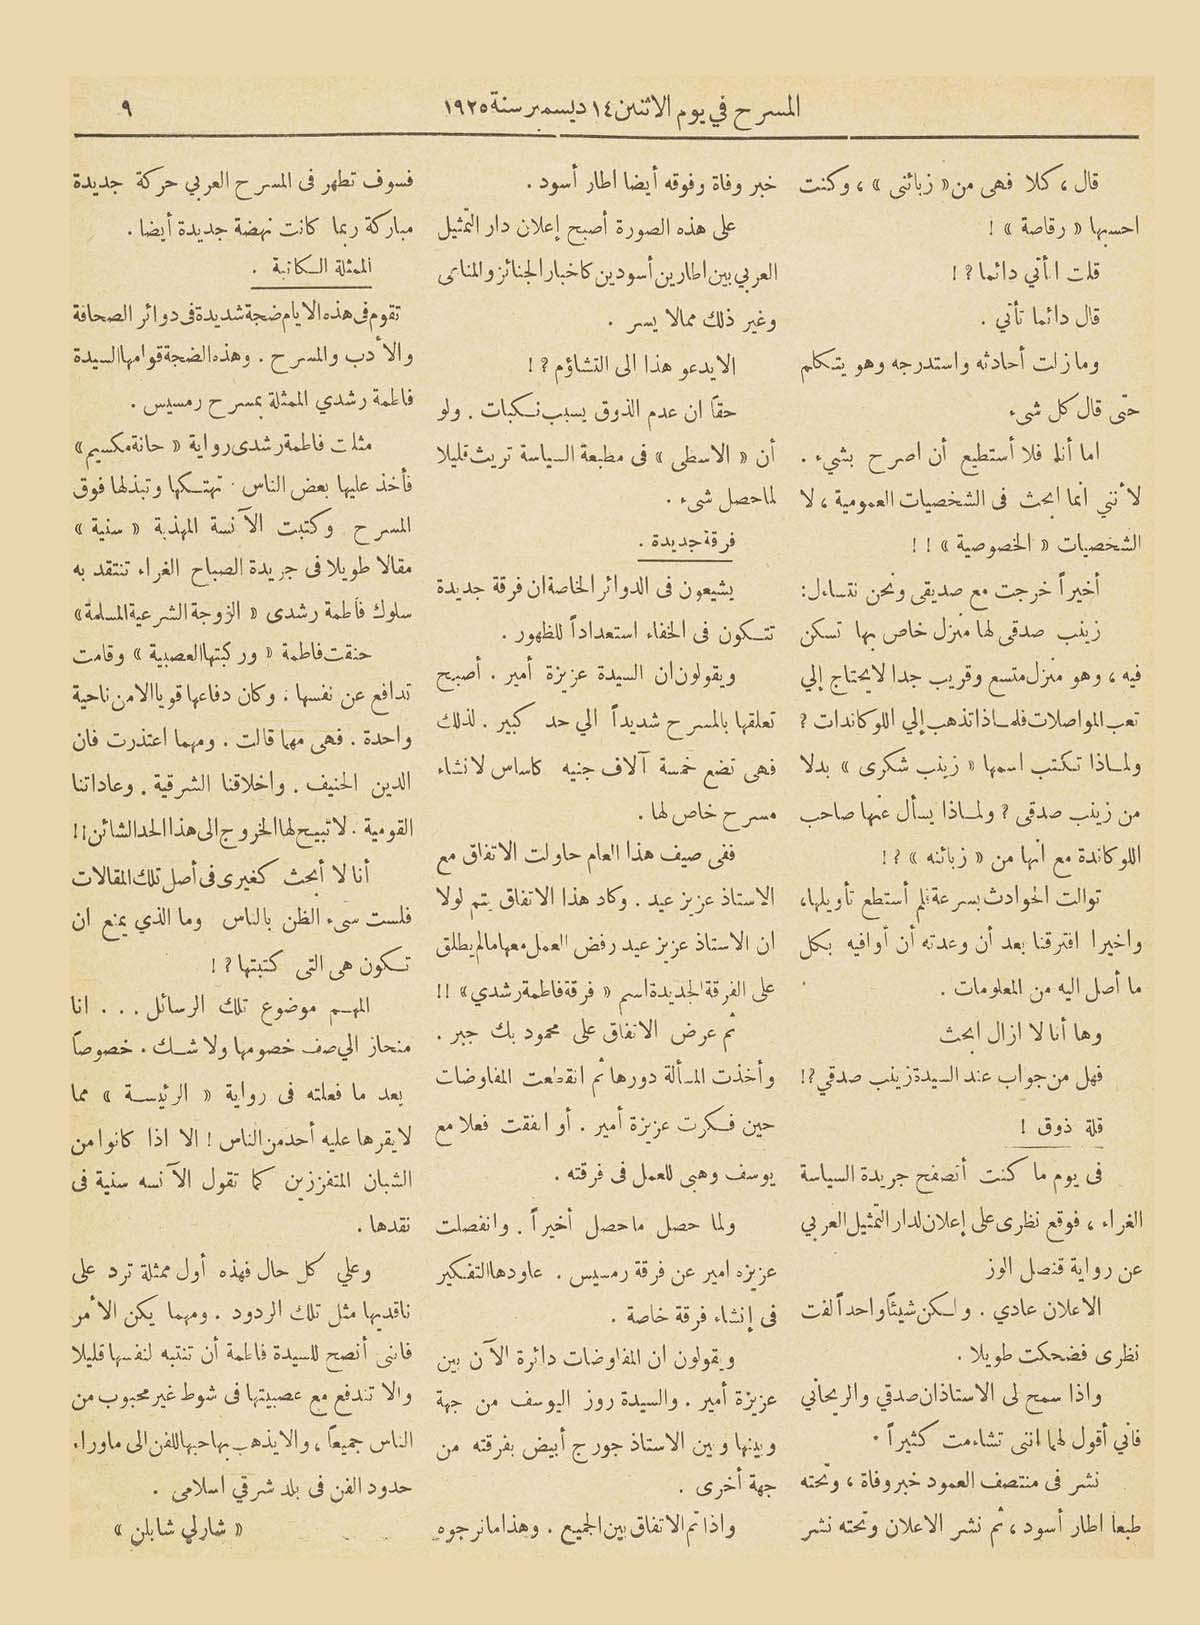 المسرح في يوم الاثنين ١٤ ديسمبر سنة ١٩٢٥
٩
قال ، كلا فهى من « زبائنى » ، وكنت
احسبها « رقاصة » !
قلت اأتي دائما ؟ !
قال دائما تأتي .
ومازلت أحادثه واستدرجه وهو يتكلم
حتى قال كل شىء
اما أنا فلا أستطيع أن اصرح بشيء .
لأنني انما ابحث فى الشخصيات العمومية ، لا
الشخصيات « الخصوصية » ! !
أخيراً خرجت مع صديقى ونحن نتساءل :
زينب صدقى لها منزل خاص بها تسكن
فيه ، وهو منزل متسع وقريب جدا لايحتاج إلي
تعب المواصلات فلماذا تذهب إلي اللوكاندات ؟
ولماذا تكتب اسمها « زينب شكرى » بدلا
من زينب صدقى ؟ ولماذا يسأل عنها صاحب
اللوكاندة مع انها من « زبائنه » ؟ !
توالت الحوادث بسرعة فلم أستطع تأويلها ،
واخيرا افترقنا بعد أن وعدته أن أوافيه بكل
ما أصل اليه من المعلومات .
وها أنا لا ازال ابحث
فهل من جواب عند السيدة زينب صدقي ؟ !
قلة ذوق !
فى يوم ما كنت أتصفح جريدة السياسة
الغراء ، فوقع نظرى على إعلان لدار التمثيل العربي
عن رواية قنصل الوز
الاعلان عادي . ولكن شيئاً واحداً لفت
نظرى فضحكت طويلا .
واذا سمح لى الاستاذان صدقي والريحاني
فاني أقول لهما اننى تشاءمت كثيراً .
نشر فى منتصف العمود خبر وفاة ، وتحته
طبعا اطار أسود ، ثم نشر الاعلان وتحته نشر
خبر وفاة وفوقه أيضا اطار أسود .
على هذه الصورة أصبح إعلان دار التمثيل
العربي بين اطارين أسودين كاخبار الجنائز والمناعى
وغير ذلك ممالا يسر .
الا يدعو هذا الى التشاؤم ؟ !
حقا ان عدم الذوق يسبب نكبات . ولو
أن « الاسطى » فى مطبعة السياسة تريث قليلا
لما حصل شىء .
فرقة جديدة .
يشيعون فى الدوائر الخاصة ان فرقة جديدة
تتكون فى الخفاء استعداداً للظهور .
ويقولون ان السيدة عزيزة أمير . أصبح
تعلقها بالمسرح شديداً الي حد كبير . لذلك
فهى تضع خمسة آلاف جنيه كاساس لانشاء
مسرح خاص لها .
ففى صيف هذا العام حاولت الاتفاق مع
الاستاذ عزيز عيد . وكاد هذا الاتفاق يتم لولا
ان الاستاذ عزيز عيد رفض العمل معها مالم يطلق
على الفرقة الجديدة اسم « فرقة فاطمة رشدي » !!
ثم عرض الاتفاق على محمود بك جبر .
وأخذت المسألة دورها ثم انقطعت المفاوضات
حين فكرت عزيزة أمير . أو اتفقت فعلا مع
يوسف وهبى للعمل فى فرقته .
ولما حصل ماحصل أخيراً . وانفصلت
عزيزه امير عن فرقة رمسيس . عاودها التفكير
فى إنشاء فرقة خاصة .
ويقولون ان المفاوضات دائرة الآن بين
عزيزة أمير . والسيدة روز اليوسف من جهة
وبينها وبين الاستاذ جورج أبيض بفرقته من
جهة أخرى .
واذا تم الاتفاق بين الجميع . وهذا مانرجوه
فسوف تظهر فى المسرح العربي حركة جديدة
مباركة ربما كانت نهضة جديدة أيضا .
الممثلة الكاتبة .
تقوم فى هذه الايام ضجة شديدة فى دوائر الصحافة
والأدب والمسرح . وهذه الضجة قوامها السيدة
فاطمة رشدي الممثلة بمسرح رمسيس .
مثلت فاطمة رشدى رواية « حانة مكسيم »
فأخذ عليها بعض الناس . تهتكها وتبذلها فوق
المسرح وكتبت الآنسة المهذبة « سنية »
مقالا طويلا فى جريدة الصباح الغراء تنتقد به
سلوك فاطمة رشدى « الزوجة الشرعية المسلمة »
حنقت فاطمة « وركبتها العصبية » وقامت
تدافع عن نفسها . وكان دفاعها قويا الا من ناحية
واحدة . فهى مهما قالت . ومهما اعتذرت فان
الدين الحنيف . واخلاقنا الشرقية . وعاداتنا
القومية . لا تبيح لها الخروج الى هذا الحد الشائن !!
أنا لا أبحث كغيرى فى أصل تلك المقالات
فلست سىء الظن بالناس وما الذي يمنع ان
تكون هى التى كتبتها ؟ !
المهم موضوع تلك الرسائل . . . انا
منحاز الي صف خصومها ولا شك . خصوصاً
بعد ما فعلته فى رواية « الرئيسة » مما
لايقرها عليه أحد من الناس ! الا اذا كانوا من
الشبان المتفززين كما تقول الآنسه سنية فى
نقدها .
وعلي كل حال فهذه أول ممثلة ترد على
ناقديها مثل تلك الردود . ومهما يكن الأمر
فاننى أنصح للسيدة فاطمة أن تنتبه لنفسها قليلا
والا تندفع مع عصبيتها فى شوط غير محبوب من
الناس جميعا ، والا يذهب بها حبها للفن الى ماوراء
حدود الفن فى بلد شرقي اسلامى .
« شارلي شابلن »